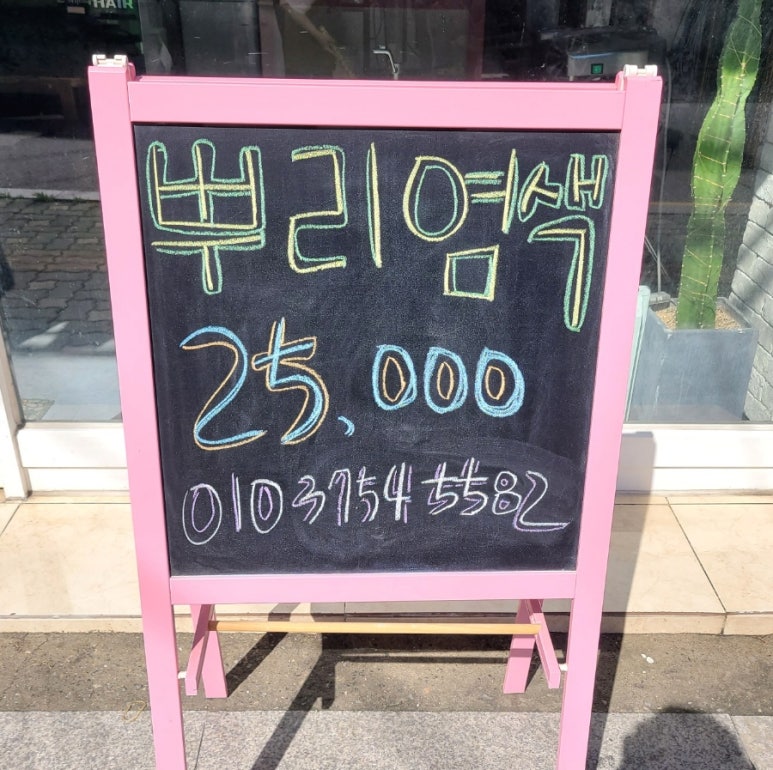 HAIR
뿌리염색
25,000
010 3754 5582